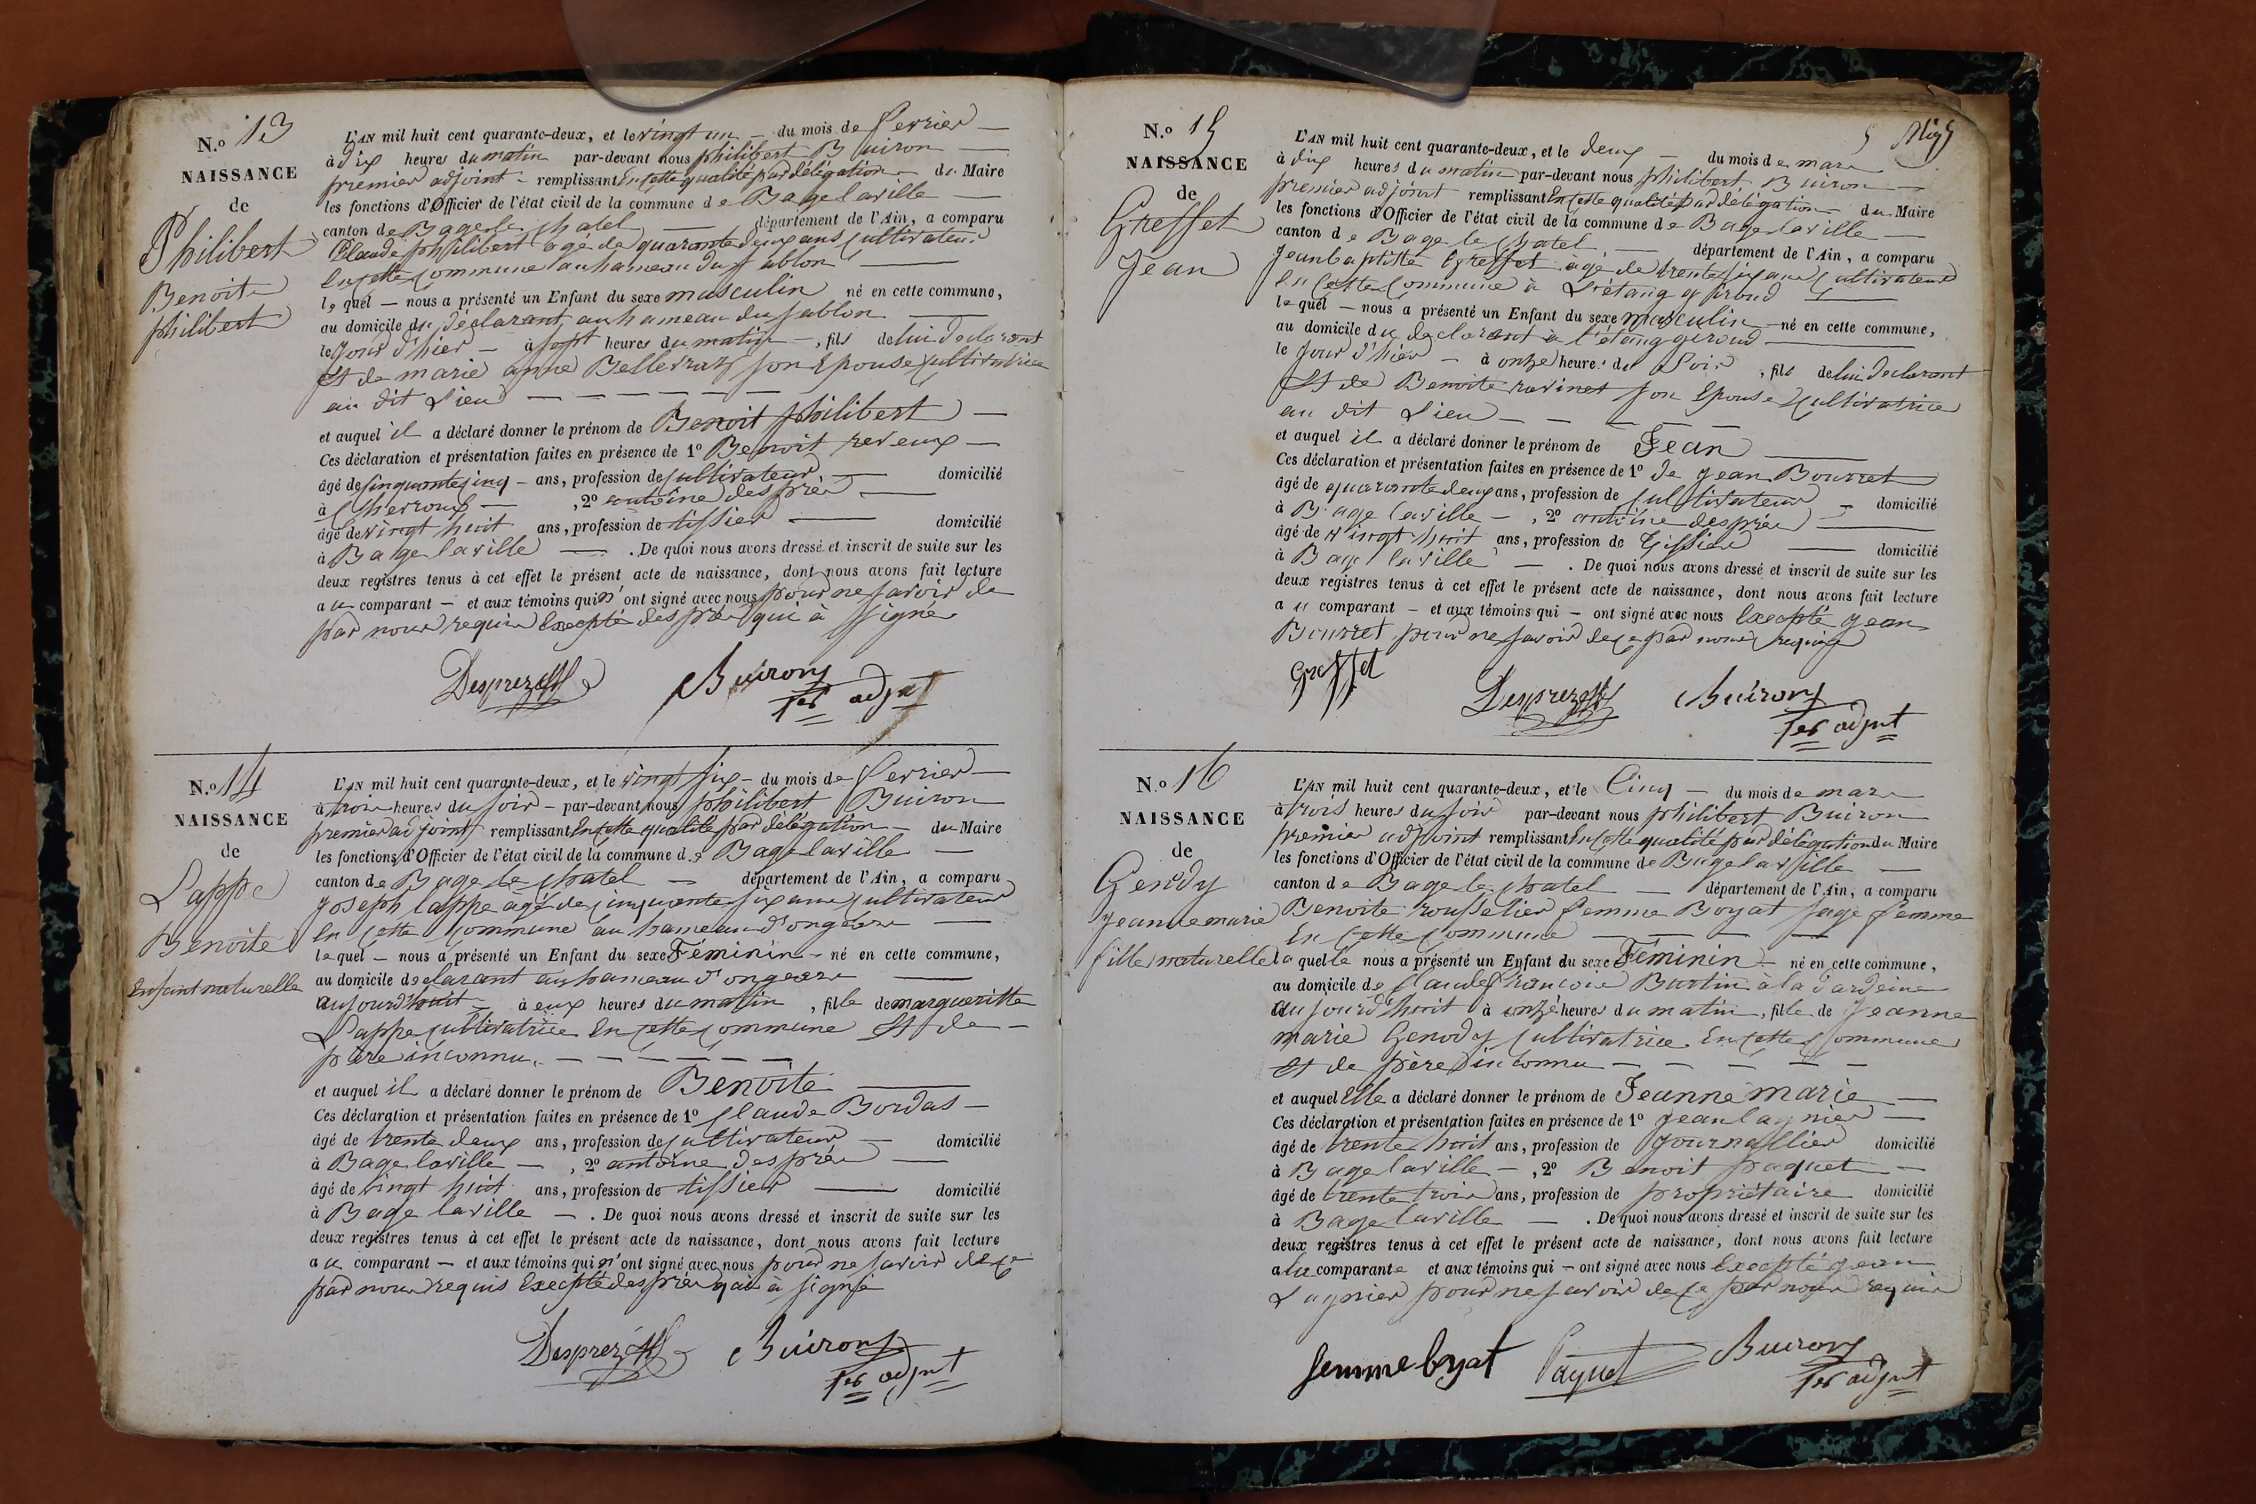 N.o 13
NAISSANCE
de
Philibert
Benoit
philibert
L'AN mil huit cent quarante-deux, et le vingt un – du mois de fevrier –
à dix heures du matin par-devant nous philibert Buiron –
premier adjoint – remplissant En cette qualité par délégation – du Maire
les fonctions d'Officier de l'état civil de la commune de Bagelaville –
canton de Bage le chatel – département de l'Ain, a comparu
Claude philibert agé de quarante deux ans Cultivateur
En cette Commune au hameau du Sablon –
le quel – nous a présenté un Enfant du sexe masculin né en cette commune,
au domicile du déclarant au hameau du Sablon –
le jour d'hier – à sept heures du matin –, fils de lui declarant
Et de marie anne Bellevrat son Epouse Cultivatrice
au dit Lieu – – – – – –
et auquel il a déclaré donner le prénom de Benoit philibert –
Ces déclaration et présentation faites en présence de 1º Benoit reveux –
âgé de Cinquante Cinq – ans, profession de Cultivateur – domicilié
à Cherroux – , 2º antoine desprès –
âgé de vingt huit ans, profession de tissier – domicilié
à Bage laville – . De quoi nous avons dressé et inscrit de suite sur les
deux registres tenus à cet effet le présent acte de naissance, dont nous avons fait lecture
au comparant – et aux témoins qui n'ont signé avec nous pour ne savoir de
par nous requis Excepté desprès qui à signé
Desprez Buiron
1er adjnt
N.o 14
NAISSANCE
de
Lappe
Benoite
Enfant naturelle
L'AN mil huit cent quarante-deux, et le vingt six – du mois de fevrier –
à trois heures du soir – par-devant nous philibert Buiron
premier adjoint remplissant En cette qualité par délégation – du Maire
les fonctions d'Officier de l'état civil de la commune de Bage laville –
canton de Bage le chatel – département de l'Ain, a comparu
joseph lappe agé de cinquante six ans Cultivateur
En cette Commune au hameau d'ongeere –
le quel – nous a présenté un Enfant du sexe Féminin – né en cette commune,
au domicile declarant au hameau d'ongeere –
aujourd'huit – à eux heures du matin , fille de margueritte
Lappe Cultivatrice En cette Commune Et de –
père inconnu. – – – – – –
et auquel il a déclaré donner le prénom de Benoite –
Ces déclaration et présentation faites en présence de 1º Claude Bordas –
âgé de trente deux ans, profession de Cultivateur – domicilié
à Bage laville – , 2º antoine desprès –
âgé de vingt huit ans, profession de tissier – domicilié
à Bage laville – . De quoi nous avons dressé et inscrit de suite sur les
deux registres tenus à cet effet le présent acte de naissance, dont nous avons fait lecture
au comparant – et aux témoins qui n'ont signé avec nous pour ne savoir de ce
par nous requis Excepté desprès qui à signé
Desprez Buiron
1er adjnt
5
N.o 15
NAISSANCE
de
Greffet
Jean
L'AN mil huit cent quarante-deux, et le deux – du mois de mars
à dix heures du matin par-devant nous philibert Buiron –
premier adjoint remplissant En cette qualité par délégation – du Maire
les fonctions d'Officier de l'état civil de la commune de Bagelaville –
canton de Bage le chatel – département de l'Ain, a comparu
Jean baptiste Greffet agé de trente six ans Cultivateur
En Cette Commune à L'étang giroud –
le quel – nous a présenté un Enfant du sexe masculin – né en cette commune,
au domicile du declarant à l'étang geroud –
le jour d'hier – à onze heures du Soir , fils de lui declarant
Et de Benoite ravinet son Epouse Cultivatrice
au dit Lieu – – – – –
et auquel il a déclaré donner le prénom de Jean –
Ces déclaration et présentation faites en présence de 1º de jean Bourret
âgé de quarante deux ans, profession de Cultivateur – domicilié
à Bage laville – , 2º antoine desprès –
âgé de vingt huit ans, profession de Tissier – domicilié
à Bage laville – . De quoi nous avons dressé et inscrit de suite sur les
deux registres tenus à cet effet le présent acte de naissance, dont nous avons fait lecture
au comparant – et aux témoins qui – ont signé avec nous Excepté jean
Bourret pour ne savoir de ce par nous requis
Greffet
Desprez Buiron
1er adjnt
N.o 16
NAISSANCE
de
Genody
jeanne marie
fille naturelle
L'AN mil huit cent quarante-deux, et le Cinq – du mois de mars
à trois heures du soir par-devant nous philibert Buiron
premier adjoint remplissant En cette qualité par délégation du Maire
les fonctions d'Officier de l'état civil de la commune de Bagelaville –
canton de Bage le chatel – département de l'Ain, a comparu
Benoite rousselier femme Boyat sage femme
En Cette Commune – – – –
la quelle nous a présenté un Enfant du sexe Féminin – né en cette commune,
au domicile de Claude francois Burtin à la
aujourd'huit à onze heures du matin, fille de Jeanne
marie Genody Cultivatrice En cette Commune
Et de père inconnu – – – – –
et auquel Elle a déclaré donner le prénom de Jeanne marie –
Ces déclaration et présentation faites en présence de 1º jean lagnier –
âgé de trente huit ans, profession de journallier domicilié
à Bage laville – , 2º Benoit paquet –
âgé de trente trois ans, profession de propriétaire domicilié
à Bage laville – . De quoi nous avons dressé et inscrit de suite sur les
deux registres tenus à cet effet le présent acte de naissance, dont nous avons fait lecture
a la comparante et aux témoins qui – ont signé avec nous Excepté jean
Lagnier pour ne savoir de ce par nous requis
femme boyat Paquet Buiron
1er adjnt